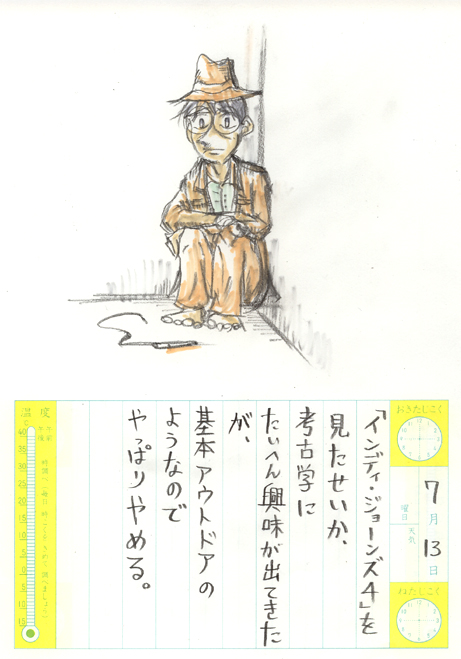 おきたじこく
7月13日
曜日
天気
ねたじこく
「インディ・ジョーンズ4」を
見たせいか、
考古学に
たいへん興味が出てきた
が、
基本アウトドアの
ようなので
やっぱりやめる。
温度
℃
40
35
30
25
20
15
10
5
0
5
10
15